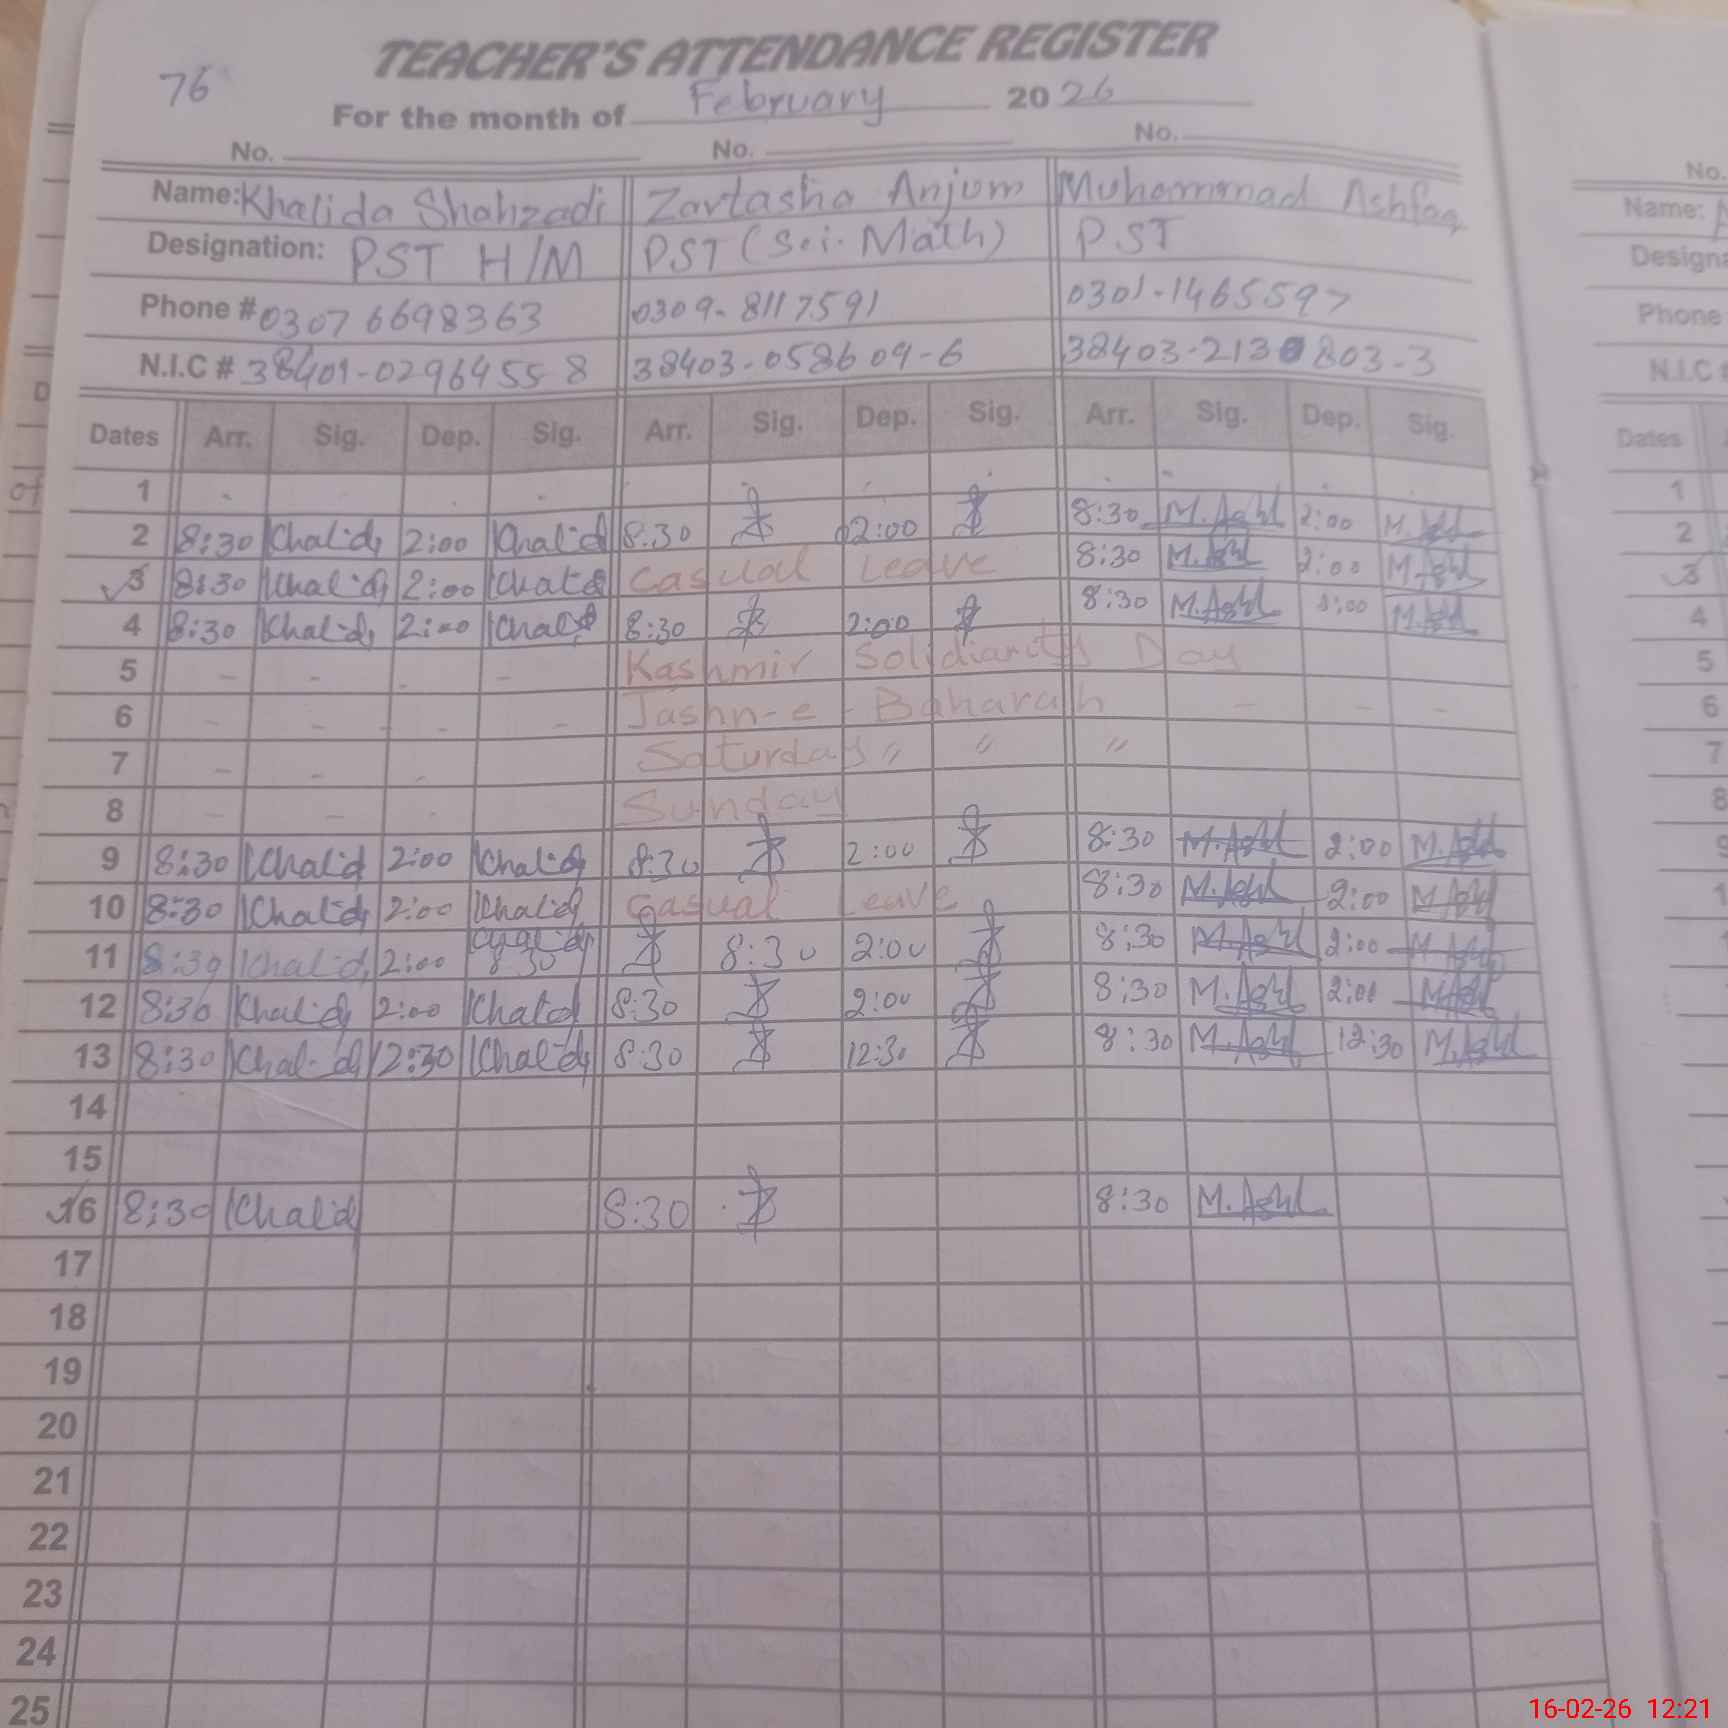 TEACHER'S ATTENDANCE REGISTER
76
For the month of February 2026
No. No. No.
Name: Khalida Shahzadi Zartasha Anjum Muhammad Ashfaq
Designation: PST H/M PST (Sci. Math) PST
Phone # 0307 6698363 0309-8117591 0301-1465597
N.I.C # 38401-0296455 8 38403-058609-6 38403-2130803-3
Dates Arr. Sig. Dep. Sig. Arr. Sig. Dep. Sig. Arr. Sig. Dep. Sig.
1
2 8:30 Khalid 2:00 Khalid 8:30 2:00 8:30 M.Ashf 2:00 M.Ashf
3 8:30 Khalid 2:00 Khalid Casual Leave 8:30 M.Ashf 2:00 M.Ashf
4 8:30 Khalid 2:00 Khalid 8:30 2:00 8:30 M.Ashf 2:00 M.Ashf
5 - - - - Kashmir Solidiarity Day
6 - - - - Jashn-e-Baharah - - -
7 - - - Saturday " " "
8 - - - Sunday
9 8:30 Khalid 2:00 Khalid 8:30 2:00 8:30 M.Ashf 2:00 M.Ashf
10 8:30 Khalid 2:00 Khalid Casual Leave 8:30 M.Ashf 2:00 M.Ashf
11 8:30 Khalid 2:00 Khalid 8:30 8:30 2:00 8:30 M.Ashf 2:00 M.Ashf
12 8:30 Khalid 2:00 Khalid 8:30 2:00 8:30 M.Ashf 2:00 M.Ashf
13 8:30 Khalid 12:30 Khalid 8:30 12:30 8:30 M.Ashf 12:30 M.Ashf
14
15
16 8:30 Khalid 8:30 8:30 M.Ashf
17
18
19
20
21
22
23
24
25
No.
Name:
Phone
N.I.C
Dates
1
2
3
4
5
6
7
8
16-02-26 12:21